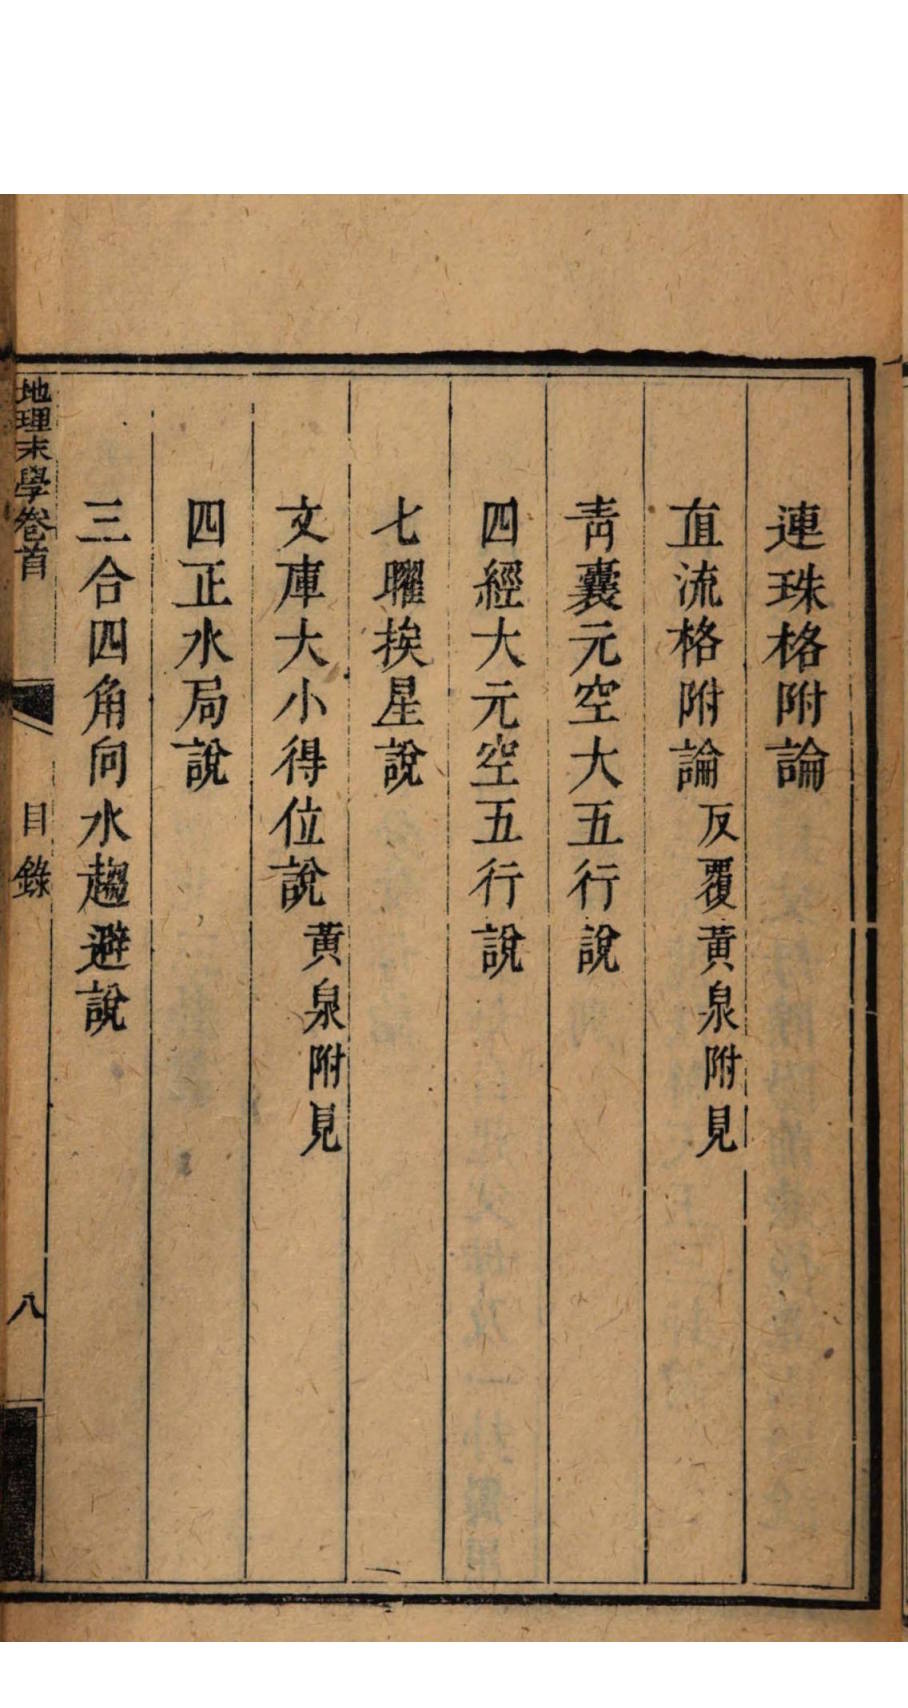 連珠格附論
直流格附論 反覆黃泉附見
青囊元空大五行說
四經大元空五行說
七曜挨星說
文庫大小得位說 黃泉附見
四正水局說
三合四角向水趨避說
地理末學卷首
目錄
八